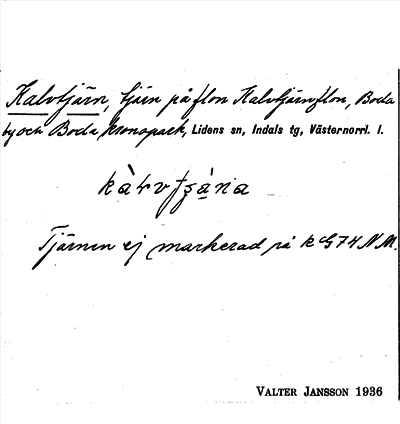 Kalvtjärn, tjärn på flon Kalvtjärnflon, Boda
by och Boda kronopark, Lidens sn, Indals tg, Västernorrl. l.
Tjärnen ej markerad på k G 74 N M.
VALTER JANSSON 1936